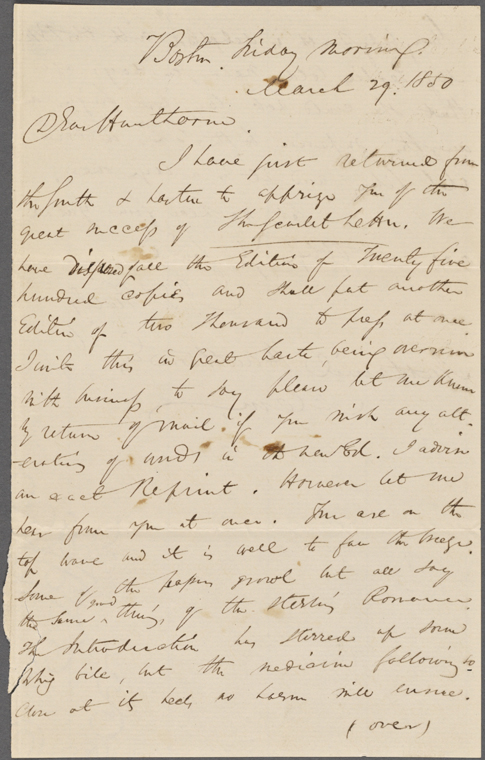 Boston. Friday morning.
March 29. 1850
Dear Hawthorne.
I have just returned from
the South & hasten to apprize you of the
great success of The Scarlet Letter. We
have disposed of all the Edition of Twenty five
hundred copies and shall put another
Edition of two Thousand to press at once.
I write this in great haste, being overrun
with business, to say please let me know
by return of mail if you wish any alt-
-eration of words in the new Ed. I advise
an exact Reprint. However let me
hear from you at once. You are on the
top wave and it is well to fan the breeze.
Some of the papers growl but all say
the same good thing of the sterling Romance.
The Introduction has stirred up some
Whig bile, but the medicine following so
close at its heels no harm will ensue.
(over)